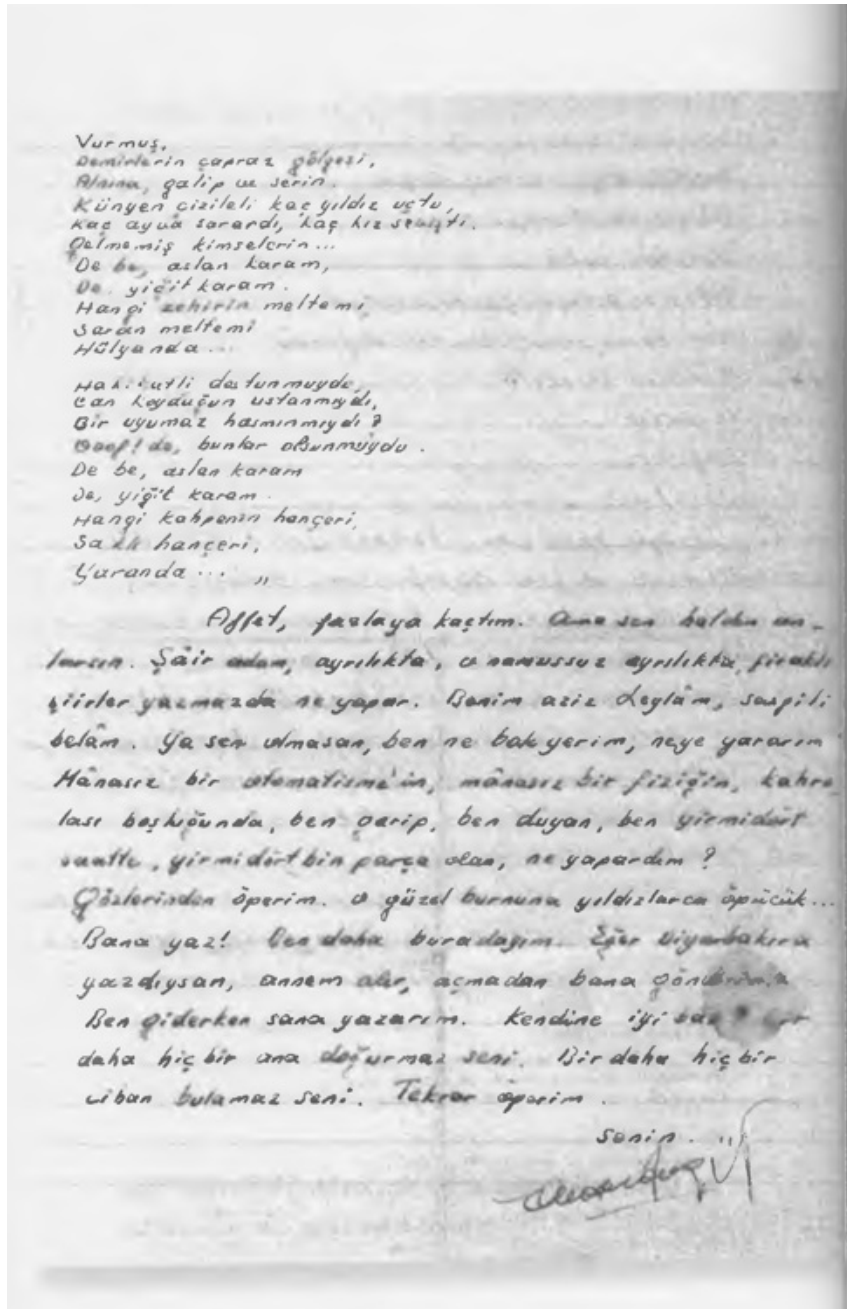 Vurmuş,
Demirlerin çapraz gölgesi,
Alnına, galip ve serin.
Künyen çizileli kaç yıldız uçtu,
Kaç ayva sarardı, kaç kız sevişti.
Gelmemiş kimselerin...
De be, aslan karam,
De yiğit karam.
Hangi zehirin meltemi,
Saran meltemi
Hülyanda...
Hakikatli dostunmuydu,
Can koyduğun ustanmıydı,
Bir uyumaz hasmınmıydı ?
Ooof! de, bunlar oğunmuydu.
De be, aslan karam
De, yiğit karam.
Hangi kahpenin hançeri,
Saklı hançeri,
Yaranda... "
Affet, fazlaya kaçtım. Ama sen haldan an-
larsın. Şâir adam, ayrılıkta, o namussuz ayrılıkta, firaklı
şiirler yazmazda ne yapar. Benim aziz Leylâm,
belâm. Ya sen olmasan, ben ne bok yerim, neye yararım
Mânasız bir otomatisme'in, mânasız bir fiziğin, kahro
lası boşluğunda, ben garip, ben duyan, ben yirmidört
saatte, yirmidört bin parça olan, ne yapardım ?
Gözlerinden öperim. O güzel burnuna yıldızlarca öpücük...
Bana yaz! Ben daha buradayım. Eğer Diyarbakıra
yazdıysan, annem alır, açmadan bana gönderir.
Ben giderken sana yazarım. Kendine iyi bak ! Bir
daha hiç bir ana doğurmaz seni. Bir daha hiç bir
cihan bulamaz seni. Tekrar öperim.
Senin...